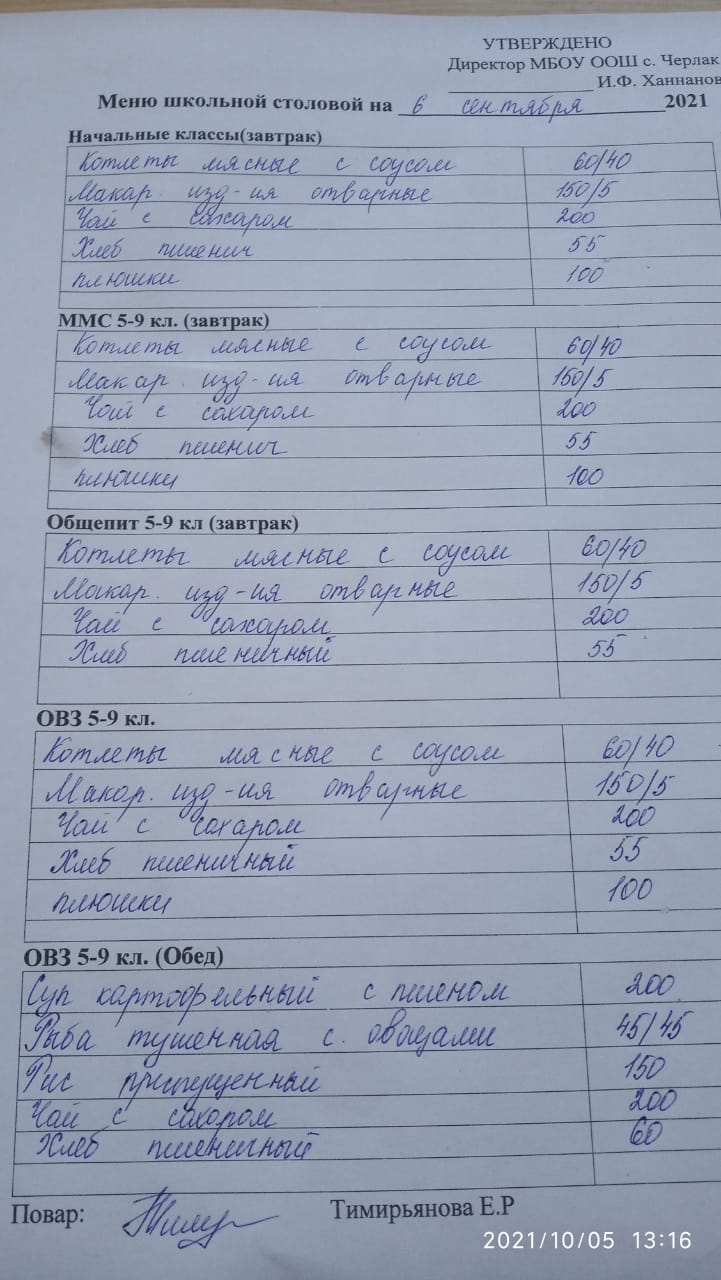 УТВЕРЖДЕНО
Директор МБОУ ООШ с. Черлак
И.Ф. Ханнанов
Меню школьной столовой на 6 сентября 2021
Начальные классы(завтрак)
Котлеты мясные с соусом 60/40
Макар. изд-ия отварные 150/5
Чай с сахаром 200
Хлеб пшенич 55
плюшки 100
ММС 5-9 кл. (завтрак)
Котлеты мясные с соусом 60/40
Макар. изд-ия отварные 150/5
Чай с сахаром 200
Хлеб пшенич 55
плюшки 100
Общепит 5-9 кл (завтрак)
Котлеты мясные с соусом 60/40
Макар. изд-ия отварные 150/5
Чай с сахаром 200
Хлеб пшеничный 55
ОВЗ 5-9 кл.
Котлеты мясные с соусом 60/40
Макар. изд-ия отварные 150/5
Чай с сахаром 200
Хлеб пшеничный 55
плюшки 100
ОВЗ 5-9 кл. (Обед)
Суп картофельный с пшеном 200
Рыба тушенная с овощами 45/45
Рис припущенный 150
Чай с сахором 200
Хлеб пшеничный 60
Повар: Тимирьянова Е.Р
2021/10/05 13:16